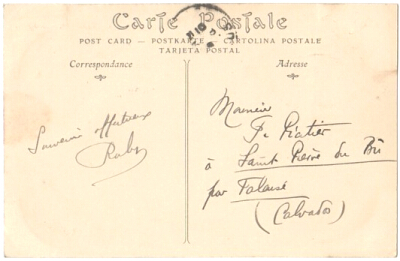 Carte Postale
POST CARD – POSTKARTE – CARTOLINA POSTALE
TARJETA POSTAL
Correspondance
Souvenir affectueux
Adresse
Monsieur
à Saint Pierre du Bû
par Falaise
(Calvados)